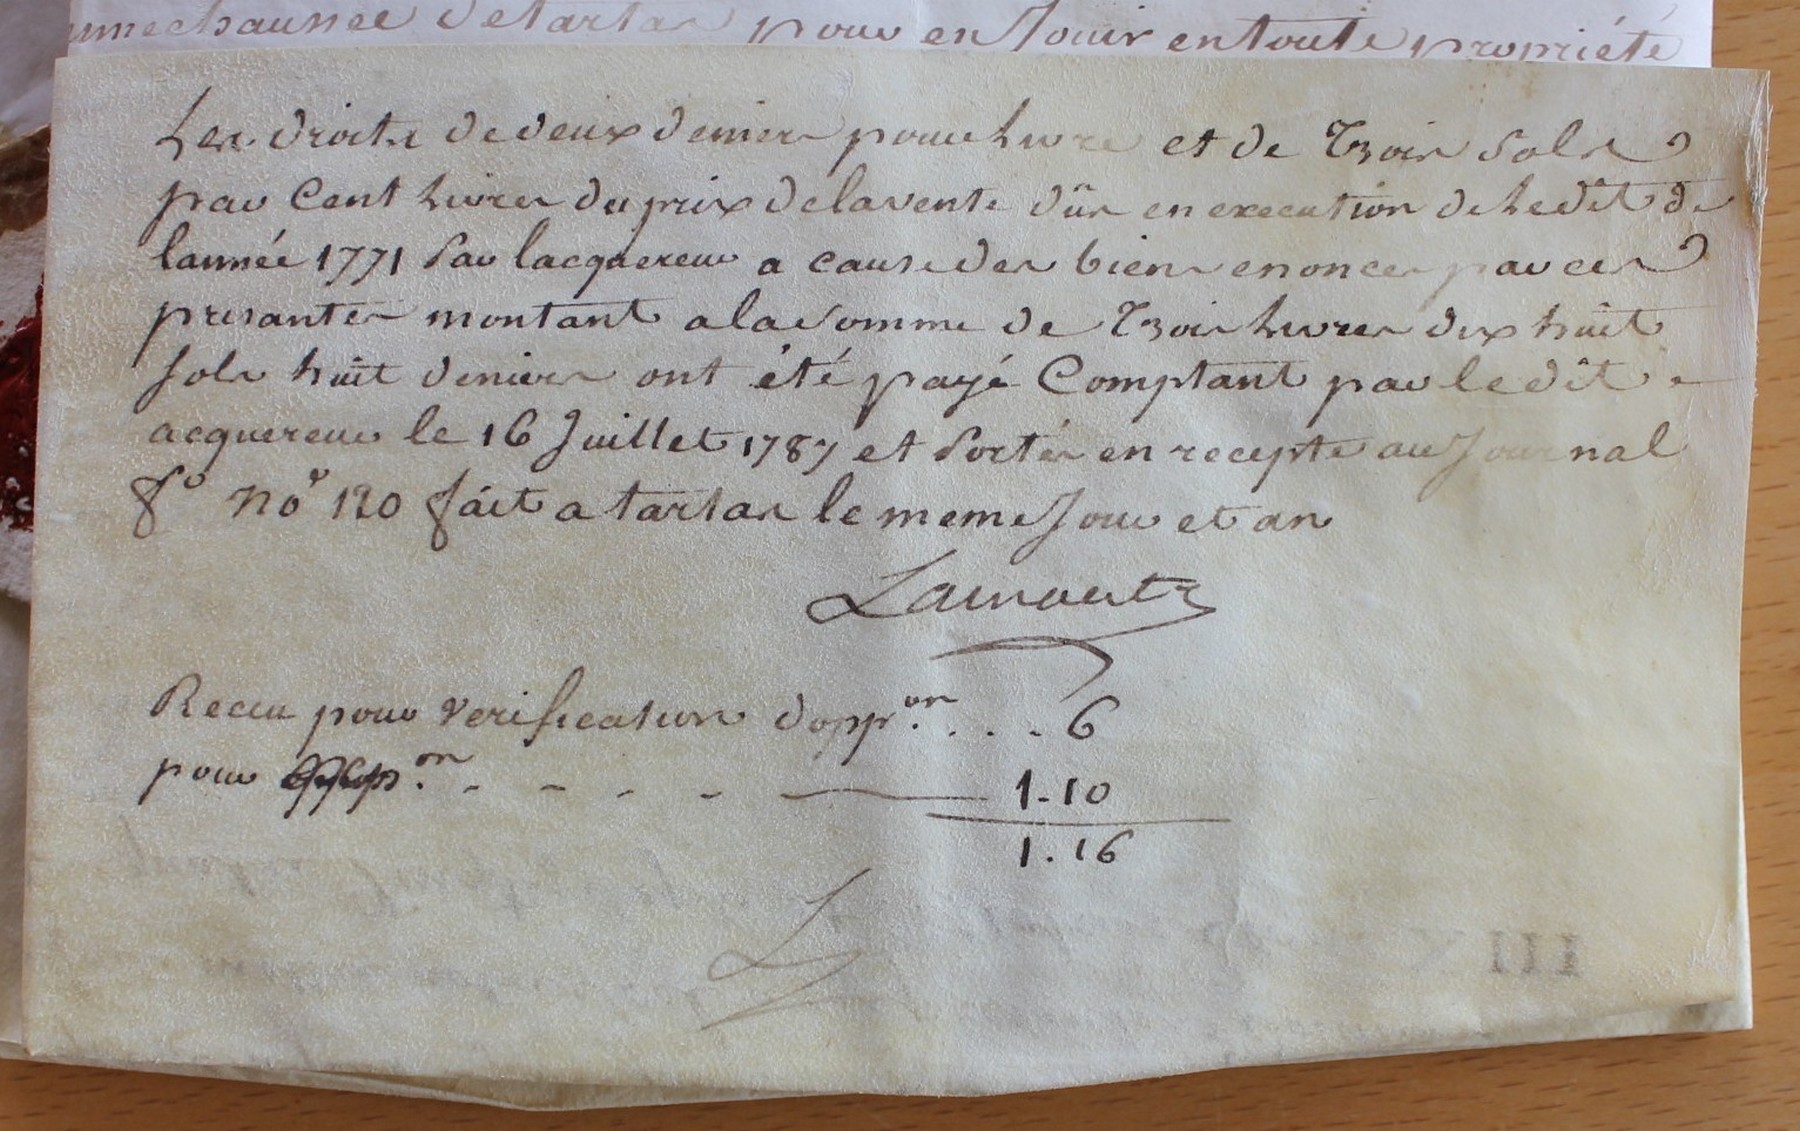 unnechaussée de tartas pour en Jouir en toute propriété
Les droits de deux deniers pour Livre et de Trois Sols
par Cent Livres du prix de la vente dûs en execution de Ledit de
lannée 1771 Par lacquereur a cause des biens enoncés par ces
presantes montant a la Somme de Trois Livres dix huit
Sols huit deniers ont été payé Comptant par le dit
acquereur le 16 Juillet 1787 et Portés en recepte au Journal
f° No 120 fait a tartas le meme Jour et an
Recu pour verification dopp.on . . . 6
pour .on - - - - 1-10
1.16
III